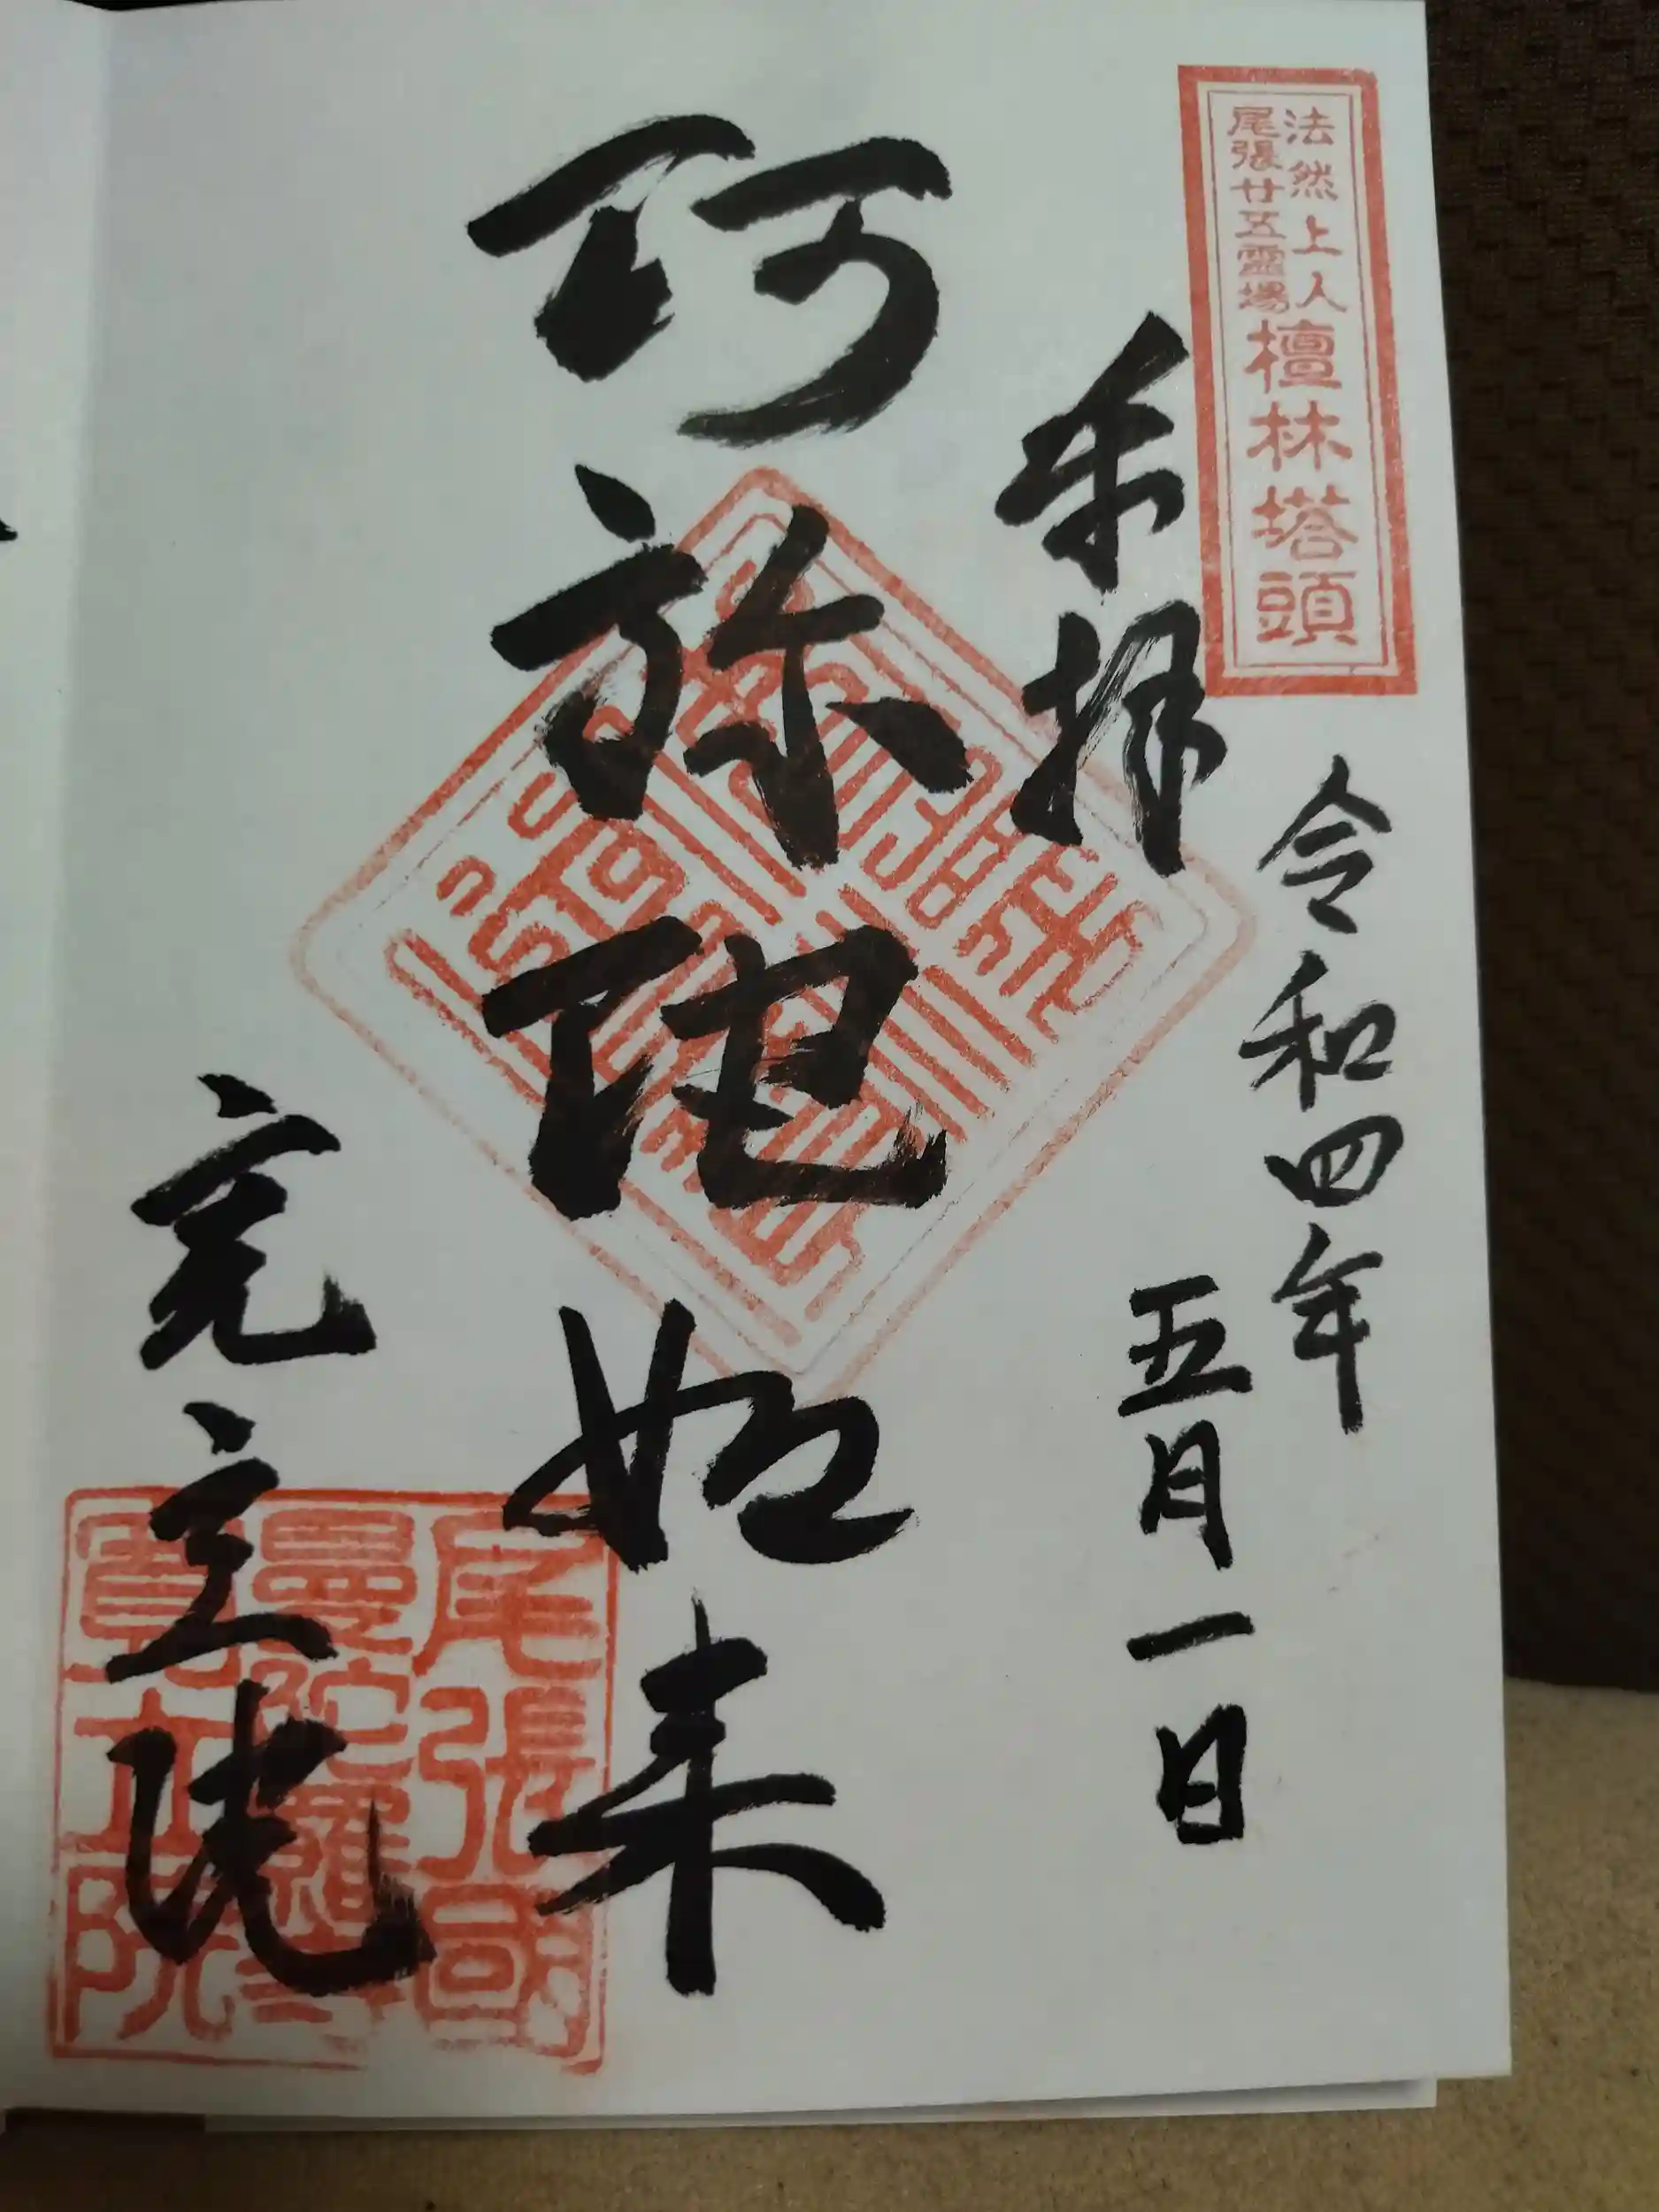 法然上人
尾張廿五霊場
檀林塔頭
令和四年
五月一日
奉拝
阿弥陀如来
寛立院
尾張國
曼陀羅寺
寛立院